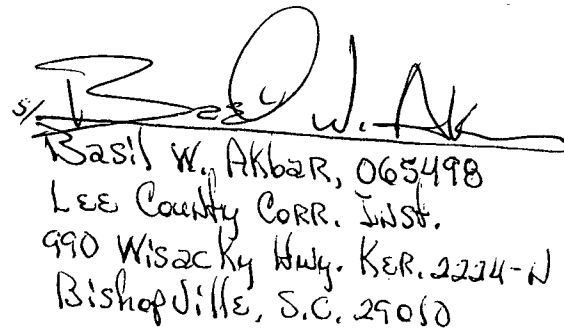 s/ Basil W. Ak
Basil W. Akbar, 065498
Lee County Corr. Inst.
990 Wisacky Hwy. Ker. 2224-N
Bishopville, S.C. 29010